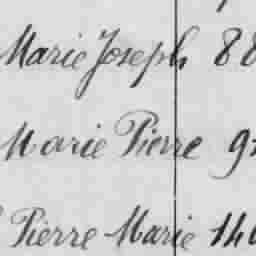 Marie Joseph 88
Marie Pierre
Pierre Marie